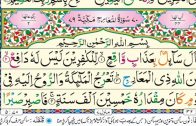 سُوْرَةُ الْمَعَارِجِ مَكِّيَّةٌ
بِسْمِ اللّٰهِ الرَّحْمٰنِ الرَّحِيْمِ
سَآئِلٌۢ بِعَذَابٍ وَّاقِعٍ لِّلْكٰفِرِيْنَ لَيْسَ لَهٗ دَافِعٌ
اللّٰهِ ذِى الْمَعَارِجِ تَعْرُجُ الْمَلٰٓئِكَةُ وَالرُّوْحُ اِلَيْهِ فِىْ
كَانَ مِقْدَارُهٗ خَمْسِيْنَ اَلْفَ سَنَةٍ فَاصْبِرْ صَبْرًا